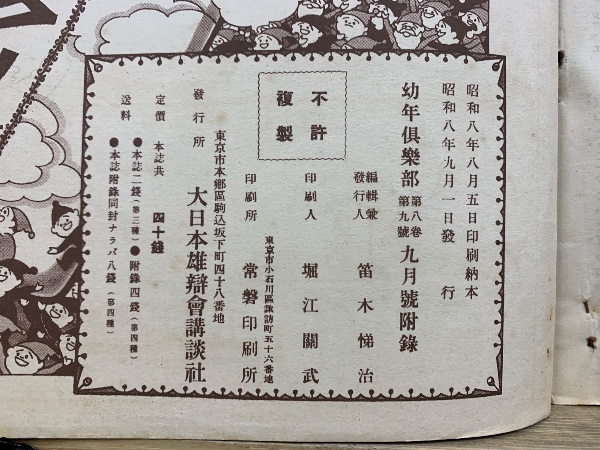 昭和八年八月五日印刷納本
昭和八年九月一日發行
幼年倶樂部 第八卷第九號 九月號附錄
編輯兼發行人 笛木悌治
印刷人 堀江關武
東京市小石川區諏訪町五十六番地
印刷所 常磐印刷所
不許
複製
東京市本鄕區駒込坂下町四十八番地
發行所 大日本雄辯會講談社
定價 本誌共 四十錢
送料 ●本誌二錢(第三種)●附錄四錢(第四種)
●本誌附錄同封ナラバ八錢(第四種)